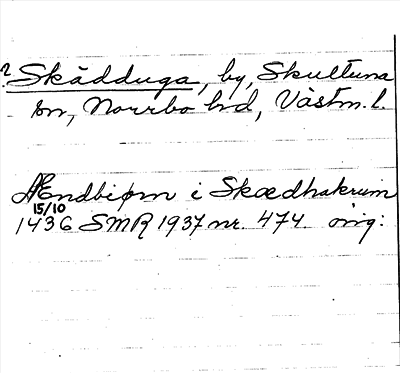 ? Skädduga, by, Skultuna
sn, Norrbo hd, Västm. l.
Ændbiørn i Skædhakrum
15/10
1436 SMR 1937 nr. 474 orig: